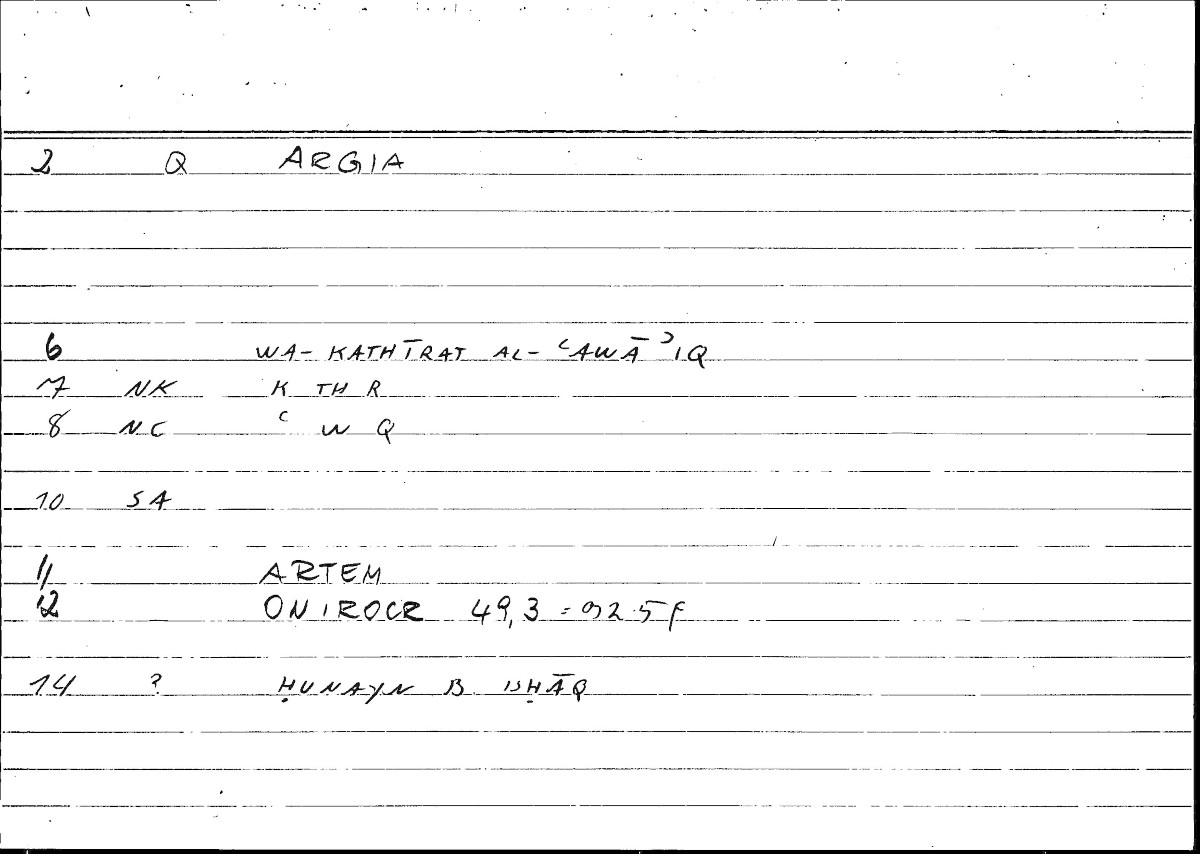 2 Q ARGIA
6 WA- KATHĪRAT AL- ʿAWĀʾIQ
7 NK K TH R
8 NC ʿ W Q
10 SA
11 ARTEM
12 ONIROCR 49,3 = 92.5f
14 ? ḤUNAYN B ISḤĀQ